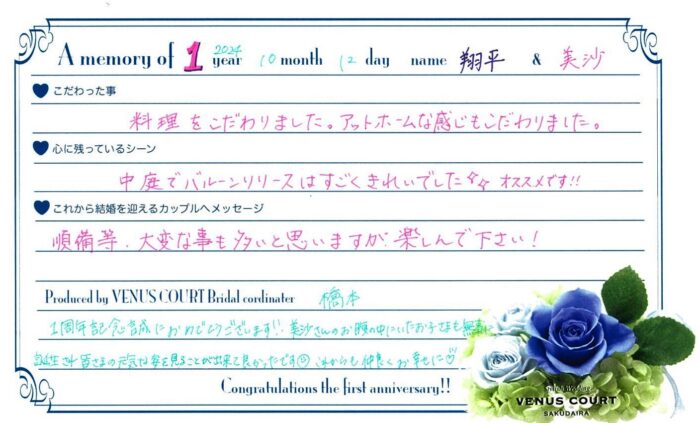 2024
A memory of 1 year 10 month 12 day name 翔平 & 美沙
こだわった事
料理をこだわりました。アットホームな感じもこだわりました。
心に残っているシーン
中庭でバルーンリリースはすごくきれいでした☆☆ オススメです!!
これから結婚を迎えるカップルへメッセージ
順備等、大変な事も多いと思いますが、楽しんで下さい!
Produced by VENUS COURT Bridal cordinater 橋本
1周年記念誠におめでとうございます!! 美沙さんのお腹の中にいたお子さまも無事に
誕生され皆さまの元気な姿を見ることが出来て良かったです☺ これからも仲良くお幸せに♡
Congratulations the first anniversary!!
VENUS COURT
SAKUDAIRA